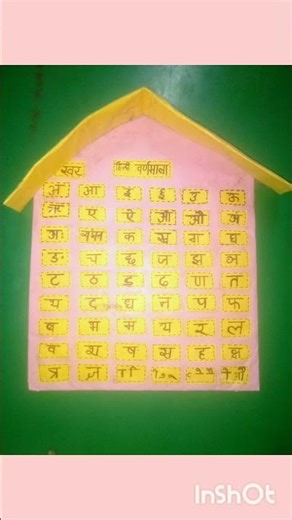 स्वर हिन्दी वर्णमाला
अ आ इ ई उ ऊ
ऋ ए ऐ ओ औ अं
अः व्यंजन क ख ग घ
ङ च छ ज झ ञ
ट ठ ड ढ ण त
थ द ध न प फ
ब भ म य र ल
व श ष स ह क्ष
त्र ज्ञ
InShOt